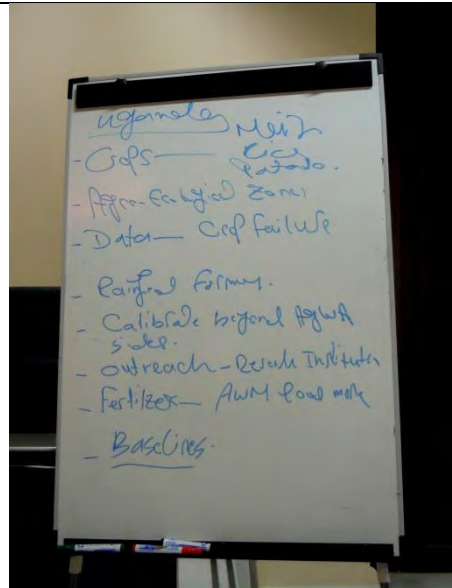 Uganda Maiz
- Crops — Rice
Potato.
- Agro-Ecological Zones
- Data — Crop failure
- Rainfed farmers.
- Calibrate beyond AgWA
sides.
- Outreach - Institutes
- Fertilizer — AWM
- Baselines.